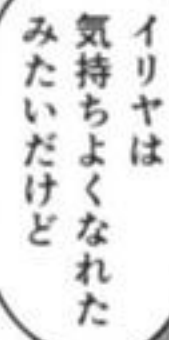 イリヤは
気持ちよくなれた
みたいだけど